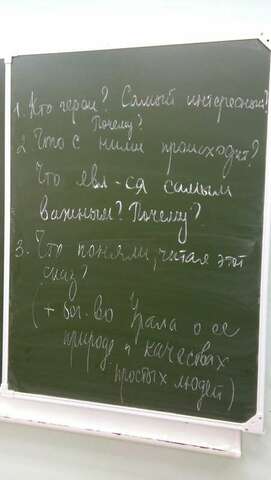 1. Кто герои? Самый интересный?
Почему?
2. Что с ними происходит?
Что явл-ся самым
важным? Почему?
3. Что поняли, читая этот
сказ?
(+ бог-во Урала о ее
природе и качествах
простых людей)